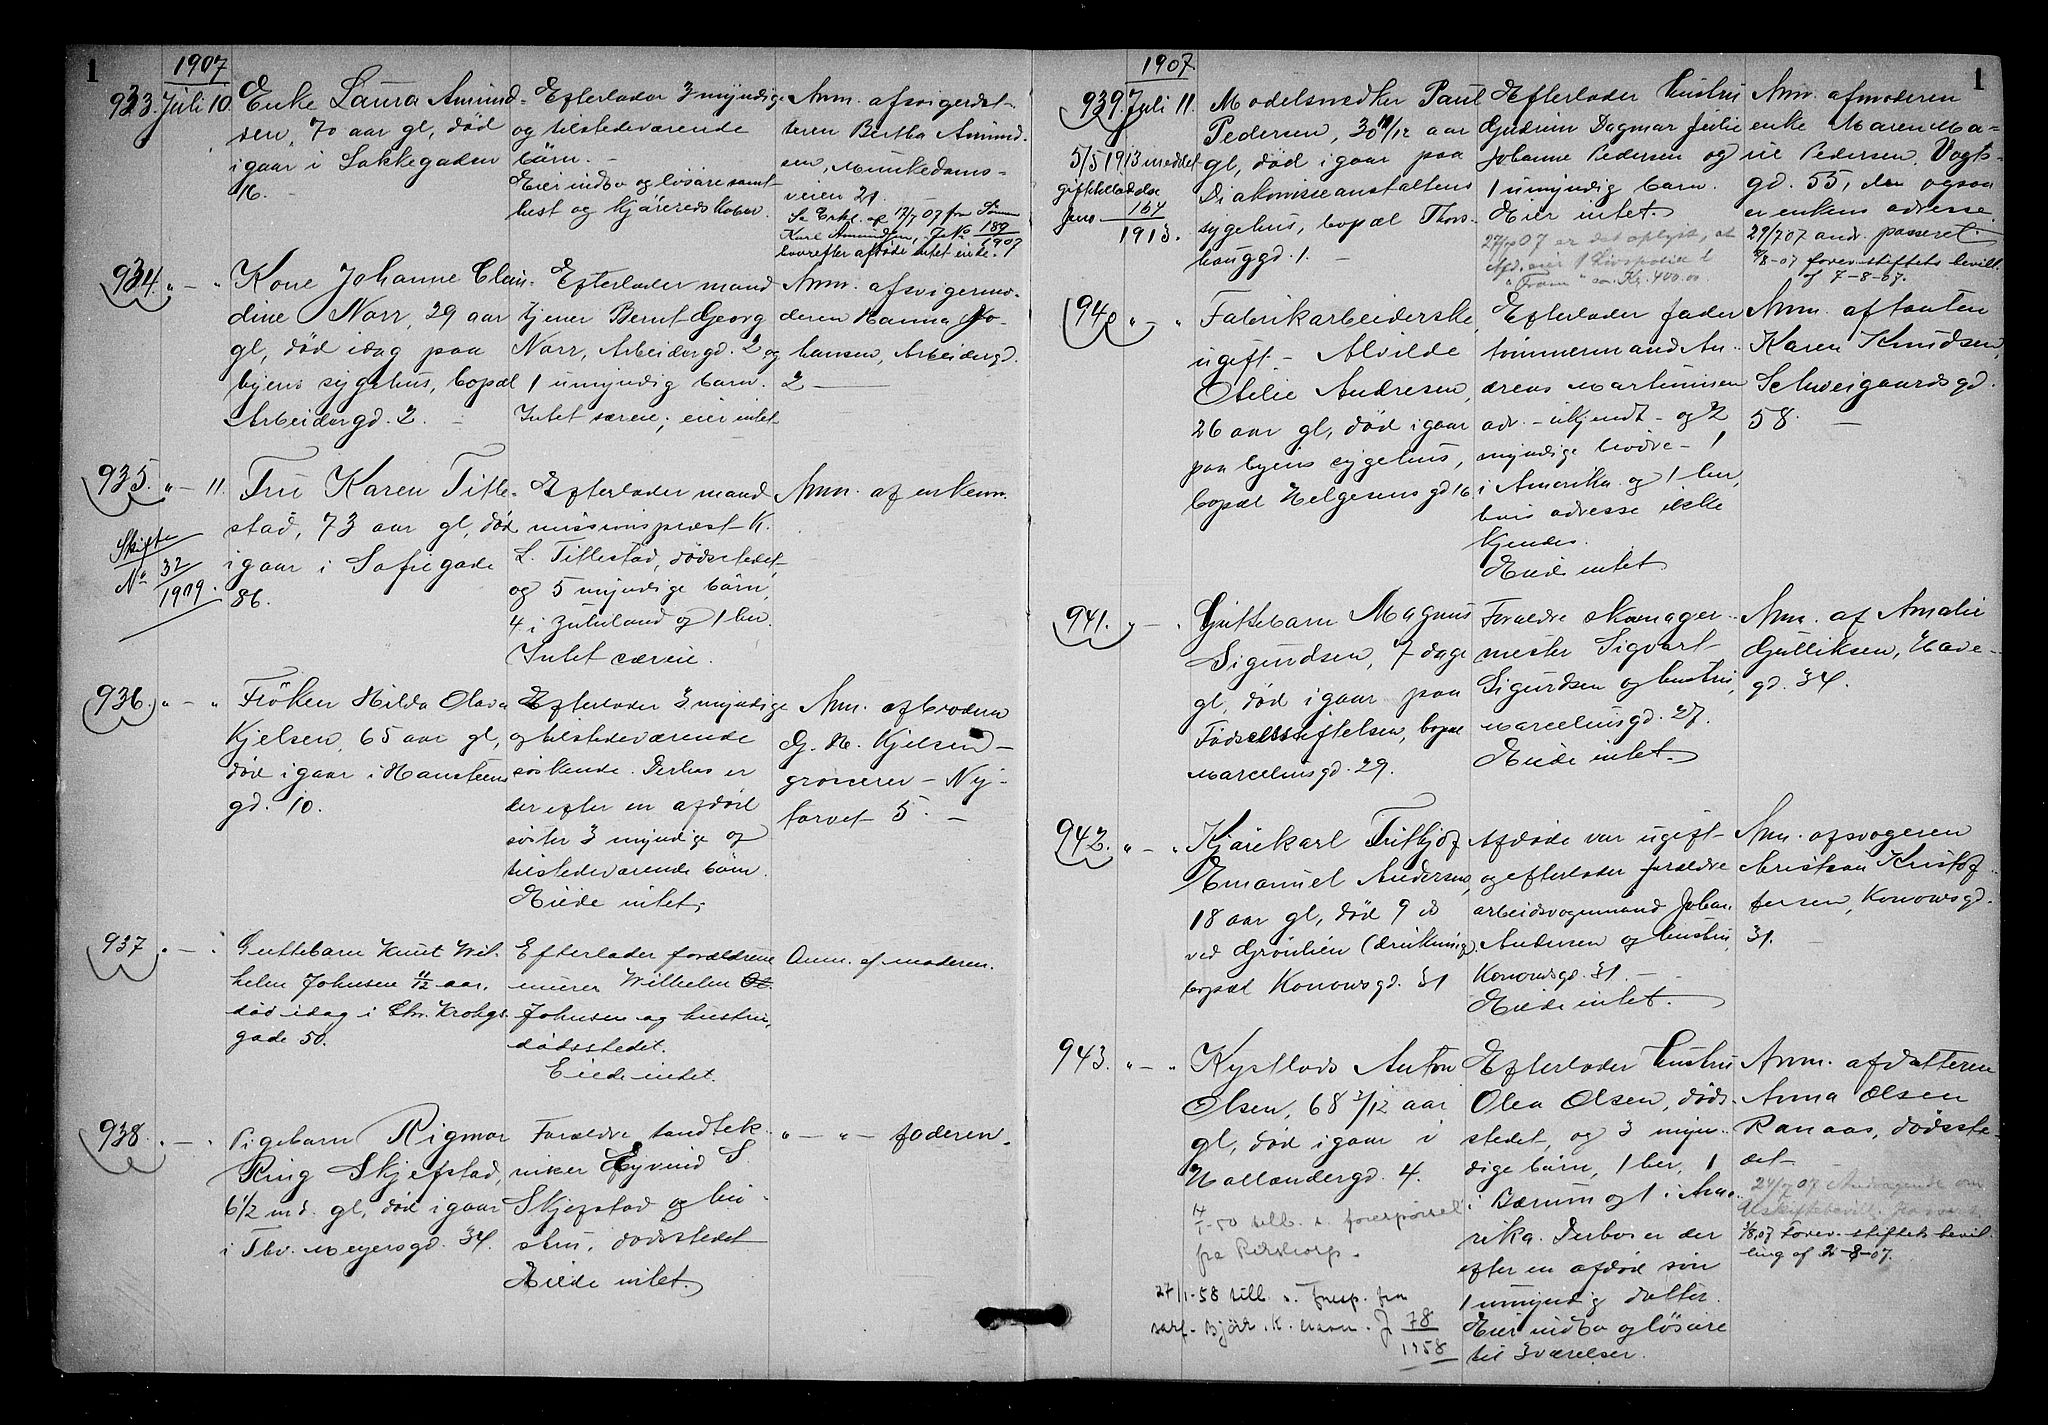 1
1907
933. Juli 10.
Enke Laura Amund-
sen, 70 aar gl, død
igaar i Lakkegaden
16.
Efterlader 3 myndige
og tilstedeværende
børn. -
Eier indbo og løsøre samt
hest og kjøreredskaber.
Anm. af svigerdat-
teren Bertha Amund-
sen, Munkedams-
veien 21.
Se Erkl. af 12/7 07 fra Sønnen
Karl Amundsen, J. No 189/1907
hvorefter afdøde intet eiede.
934. " - "
Kone Johanne Clau-
dine Norr, 29 aar
gl, død idag paa
byens sygehus, bopæl
Arbeidergd. 2. -
Efterlader mand
tjener Bernt Georg
Norr, Arbeidergd. 2 og
1 umyndig barn.
Intet særeie; eier intet
Anm. af svigermo-
deren Hanna Jo-
hansen, Arbeidergd.
2
935. " - 11.
Skifte
No 32/1909.
Fru Karen Title-
stad, 73 aar gl, død
igaar i Sofiegade
86.
Efterlader mand
missionsprest K.
L. Titlestad, dødsstedet,
og 5 myndige børn,
4 i Zululand og 1 her.
Intet særeie.
Anm. af enkem.
936. " - "
Frøken Hilda Olava
Kjelsen, 65 aar gl,
død igaar i Hansteens
gd. 10.
Efterlader 3 myndige
og tilstedeværende
søskende. Derhos er
der efter en afdød
søster 3 myndige og
tilstedeværende børn.
Eiede intet.
Anm. af broderen
G. H. Kjelsen -
grosserer - Ny-
torvet 5. -
937 " - "
Guttebarn Knut Wil-
helm Johnsen 11/12 aar.
død idag i Chr. Krohgs
gade 50.
Efterlader forældrene
murer Wilhelm
Johnsen og hustru,
dødsstedet.
Eiede intet.
Anm. af moderen.
938. " - "
Pigebarn Rigmor
Ring Skjefstad,
6 1/2 md. gl, død igaar
i Thv. Meyersgd. 34.
Forældre tandtek-
niker Eyvind S.
Skjefstad og hu-
stru, dødsstedet
Eiede intet.
" - " - faderen.
1
1907.
939. Juli 11.
5/5 1913 meddelt
giftetilladelse
Jour. 164/1913.
Modelsnedker Paul
Pedersen, 30 10/12 aar
gl, død igaar paa
Diakonisseanstaltens
sygehus, bopæl Thors-
hauggd. 1. -
Efterlader hustru
Gudrun Dagmar Julie
Johanne Pedersen og
1 umyndig barn.
Eier intet.
27/7 07 er det oplyst, at
Afd. eier 1 Livspolice i
"Fram" ca. Kr. 400.00
Anm. af moderen
enke Maren Ma-
rie Pedersen, Vogts-
gd. 55, der ogsaa
er enkens adresse.
29/7 07 andr. passeret.
/8-07 forev. stiftets bevill.
af 7-8-07.
940 " - "
Fabrikarbeiderske,
ugift - Alvilde
Otelie Andresen,
26 aar gl, død igaar
paa byens sygehus,
bopæl Helgesens gd 16
Efterlader fader
tømmermand An-
dreas Martinusen
adr. - ukjendt - og 2
myndige brødre - 1
i Amerika og 1 her,
hvis adresse ikke
kjendes.
Eiede intet
Anm. af tanten
Karen Knudsen,
Schweigaardsgd.
58. -
941. " - "
Guttebarn Magnus
Sigurdsen, 7 dage
gl, død igaar paa
Fødselsstiftelsen, bopæl
Marcelinsgd. 29.
Forældre skomager-
mester Sigvart
Sigurdsen og hustru,
Marcelinsgd. 27.
Eiede intet.
Anm. af Amalie
Gulliksen, Have-
gd. 34.
942. " - "
Kjørekarl Fritjof
Emanuel Andersen,
18 aar gl, død 9 ds
ved Grønlien (drukning)
bopæl Konowsgd. 31
Afdøde var ugift
og efterlader forældre
arbeidsvognmand Johan
Andersen og hustru,
Konowsgd. 31. -
Eiede intet.
Anm. af svogeren
Kristian Kristof-
fersen, Konowsgd.
31. -
943. " - "
Kystlods Anton
Olsen, 68 3/12 aar
gl, død igaar i
Hollændergd. 4.
-50 till. s. forespørsel
fra
27/1-58 till. s. foresp. fra
J 78/1958
Efterlader hustru
Olea Olsen, døds-
stedet, og 3 myn-
dige børn, 1 her, 1
i Bærum og 1 i Ame-
rika. Derhos er der
efter en afdød søn
1 umyndig datter.
Eier indbo og løsøre
til 3 værelser.
Anm. af datteren
Anna Olsen
Ranaas, dødsste-
det
24/7 07 Andragende om
Uskiftebevill.
3/8.07 Forev. stiftets bevil-
ling af 2-8-07.